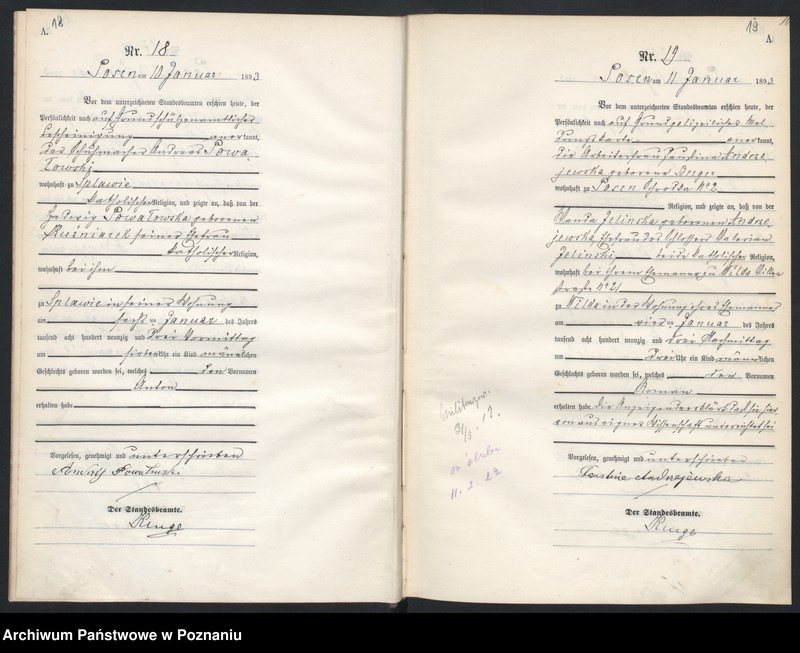 A. 18
Nr. 18
Posen am 10 Januar 1893
Vor dem unterzeichneten Standesbeamten erschien heute, der
Persönlichkeit nach auf Grund schulzenamtlicher
Bescheinigung anerkannt,
der Schuhmacher Andreas Powa-
łowski
wohnhaft zu Splawie
katholischer Religion, und zeigte an, daß von der
Hedwig Powałowska geborenen
Kuźniarek seiner Ehefrau
katholischer Religion,
wohnhaft bei ihm
zu Splawie in seiner Wohnung
am sechsten Januar des Jahres
tausend acht hundert neunzig und drei Vormittag
um sieben Uhr ein Kind männlichen
Geschlechts geboren worden sei, welches den Vornamen
Anton
erhalten habe
Vorgelesen, genehmigt und unterschrieben
Powałowski
Der Standesbeamte.
Runge
19
A.
Nr. 19
Posen am 11 Januar 1893
Vor dem unterzeichneten Standesbeamten erschien heute, der
Persönlichkeit nach auf Grund polizeilicher Mel-
dungskarte anerkannt,
die Arbeiterfrau Faustina Andrze-
jewska geborene Berger
wohnhaft zu Posen Schrodka No 2
Religion, und zeigte an, daß von der
Wanda Zelinska geborenen Andrze-
jewska Ehefrau des Schlossers Valerian
Zelinski, beide katholischer Religion,
wohnhaft bei ihrem Ehemanne zu Wilda Villen
straße No 21
zu Wilda in der Wohnung ihres Ehemannes
am vierten Januar des Jahres
tausend acht hundert neunzig und drei Nachmittag
um drei Uhr ein Kind männlichen
Geschlechts geboren worden sei, welches den Vornamen
Roman
erhalten habe Die Anzeigende erklärt, daß sie hier-
von aus eigner Wissenschaft unterrichtet sei
Vorgelesen, genehmigt und unterschrieben
Faustine Andrzejewska
Der Standesbeamte.
Runge
11. 2. 23
Archiwum Państwowe w Poznaniu